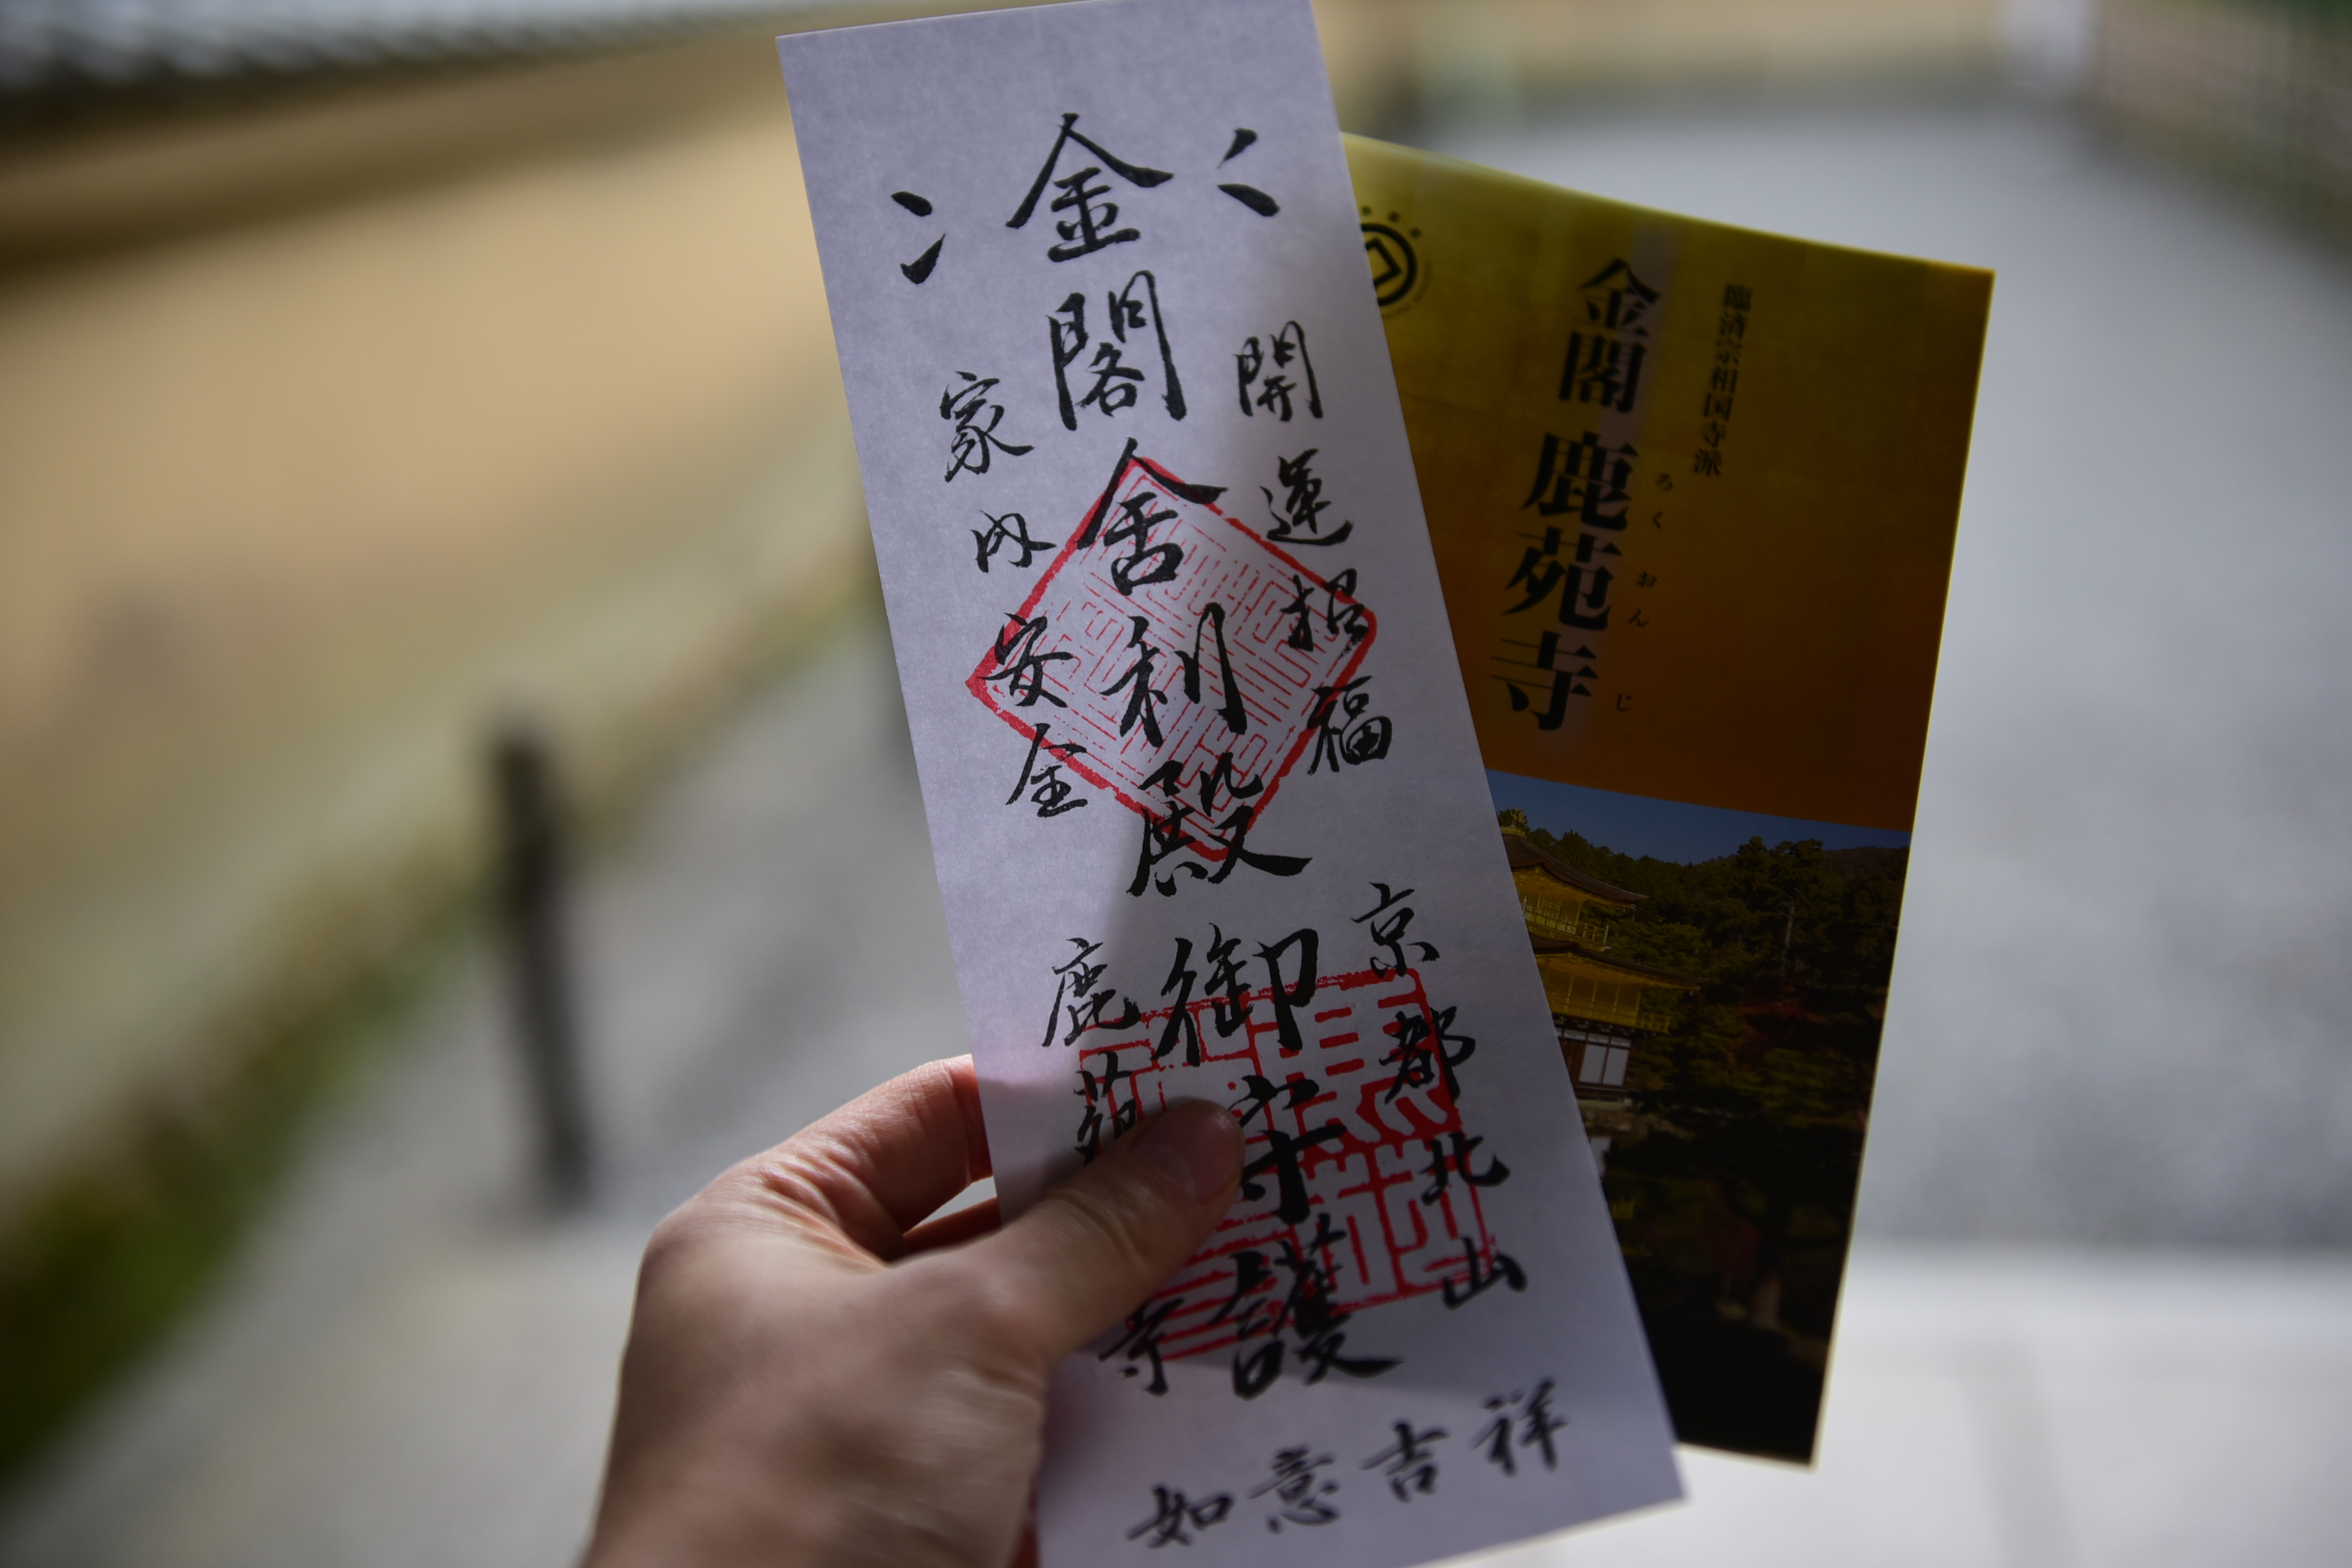 金閣舎利殿御守護
開運招福
家内安全
京都北山
鹿苑寺
如意吉祥
臨済宗相国寺派
金閣 鹿苑寺
ろくおんじ